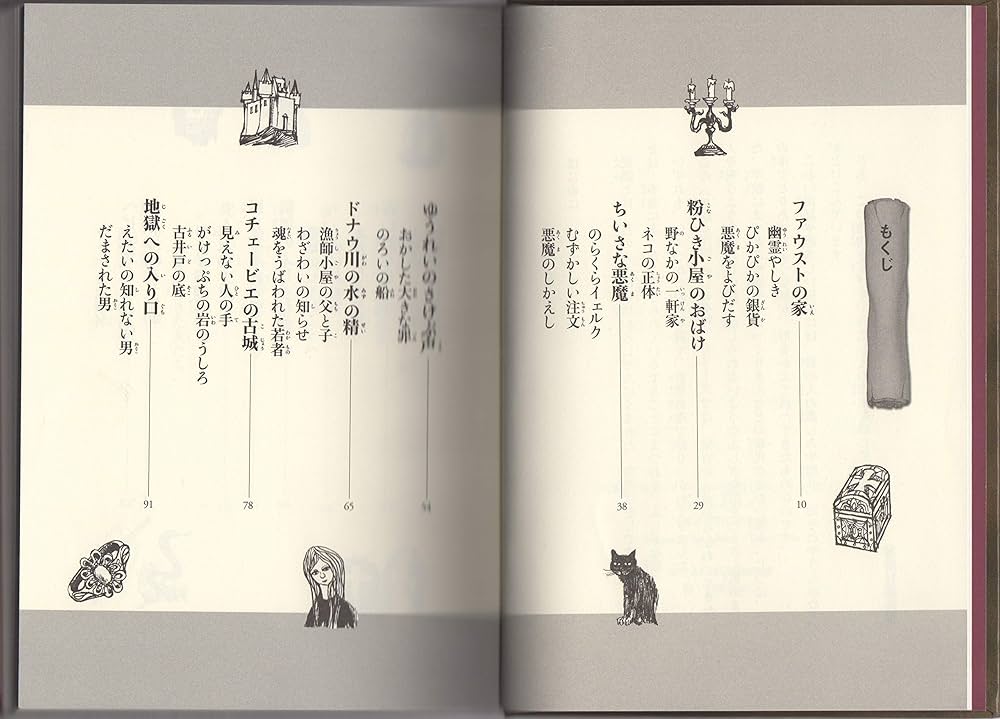 もくじ
ファウストの家 10
幽霊やしき
ぴかぴかの銀貨
悪魔をよびだす
粉ひき小屋のおばけ 29
野なかの一軒家
ネコの正体
ちいさな悪魔 38
のらくらイェルク
むずかしい注文
悪魔のしかえし
ゆうれいのさけぶ声
おかした大きな罪
のろいの船
ドナウ川の水の精 65
漁師小屋の父と子
わざわいの知らせ
魂をうばわれた若者
コチェービエの古城 78
見えない人の手
がけっぷちの岩のうしろ
古井戸の底
地獄への入り口 91
えたいの知れない男
だまされた男